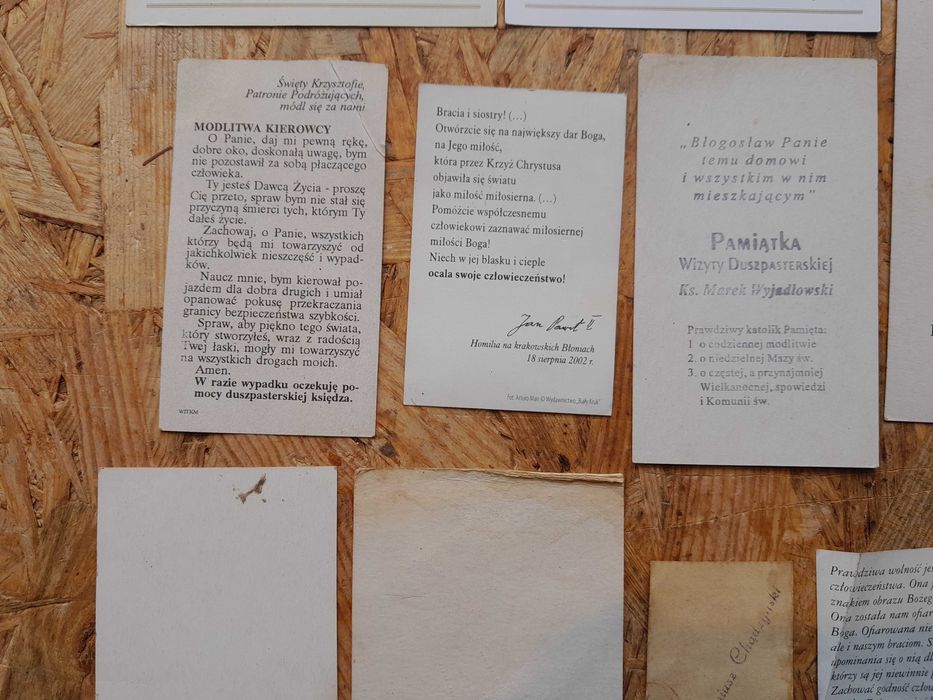 Święty Krzysztofie,
Patronie Podróżujących,
módl się za nami
MODLITWA KIEROWCY
O Panie, daj mi pewną rękę,
dobre oko, doskonałą uwagę, bym
nie pozostawił za sobą płaczącego
człowieka.
Ty jesteś Dawcą Życia - proszę
Cię przeto, spraw bym nie stał się
przyczyną śmierci tych, którym Ty
dałeś życie.
Zachowaj, o Panie, wszystkich
którzy będą mi towarzyszyć od
jakichkolwiek nieszczęść i wypad-
ków.
Naucz mnie, bym kierował po-
jazdem dla dobra drugich i umiał
opanować pokusę przekraczania
granicy bezpieczeństwa szybkości.
Spraw, aby piękno tego świata,
który stworzyłeś, wraz z radością
Twej łaski, mogły mi towarzyszyć
na wszystkich drogach moich.
Amen.
W razie wypadku oczekuję po-
mocy duszpasterskiej księdza.
WITKM
Bracia i siostry! (...)
Otwórzcie się na największy dar Boga,
na Jego miłość,
która przez Krzyż Chrystusa
objawiła się światu
jako miłość miłosierna. (...)
Pomóżcie współczesnemu
człowiekowi zaznawać miłosiernej
miłości Boga!
Niech w jej blasku i cieple
ocala swoje człowieczeństwo!
Jan Paweł II
Homilia na krakowskich Błoniach
18 sierpnia 2002 r.
Fot. Arturo Mari © Wydawnictwo „Biały Kruk"
„Błogosław Panie
temu domowi
i wszystkim w nim
mieszkającym"
PAMIĄTKA
WIZYTY DUSZPASTERSKIEJ
Ks. Marek Wyjadłowski
Prawdziwy katolik Pamięta:
1 o codziennej modlitwie
2. o niedzielnej Mszy św.
3. o częstej, a przynajmniej
Wielkanocnej, spowiedzi
i Komunii św.
Prawdziwa wolność
człowieczeństwa. Ona
znakiem obrazu
Ona została nam
Boga. Ofiarowana
ale i naszym braciom.
upominania się o nią
którzy są jej niewinnie
Zachować godność